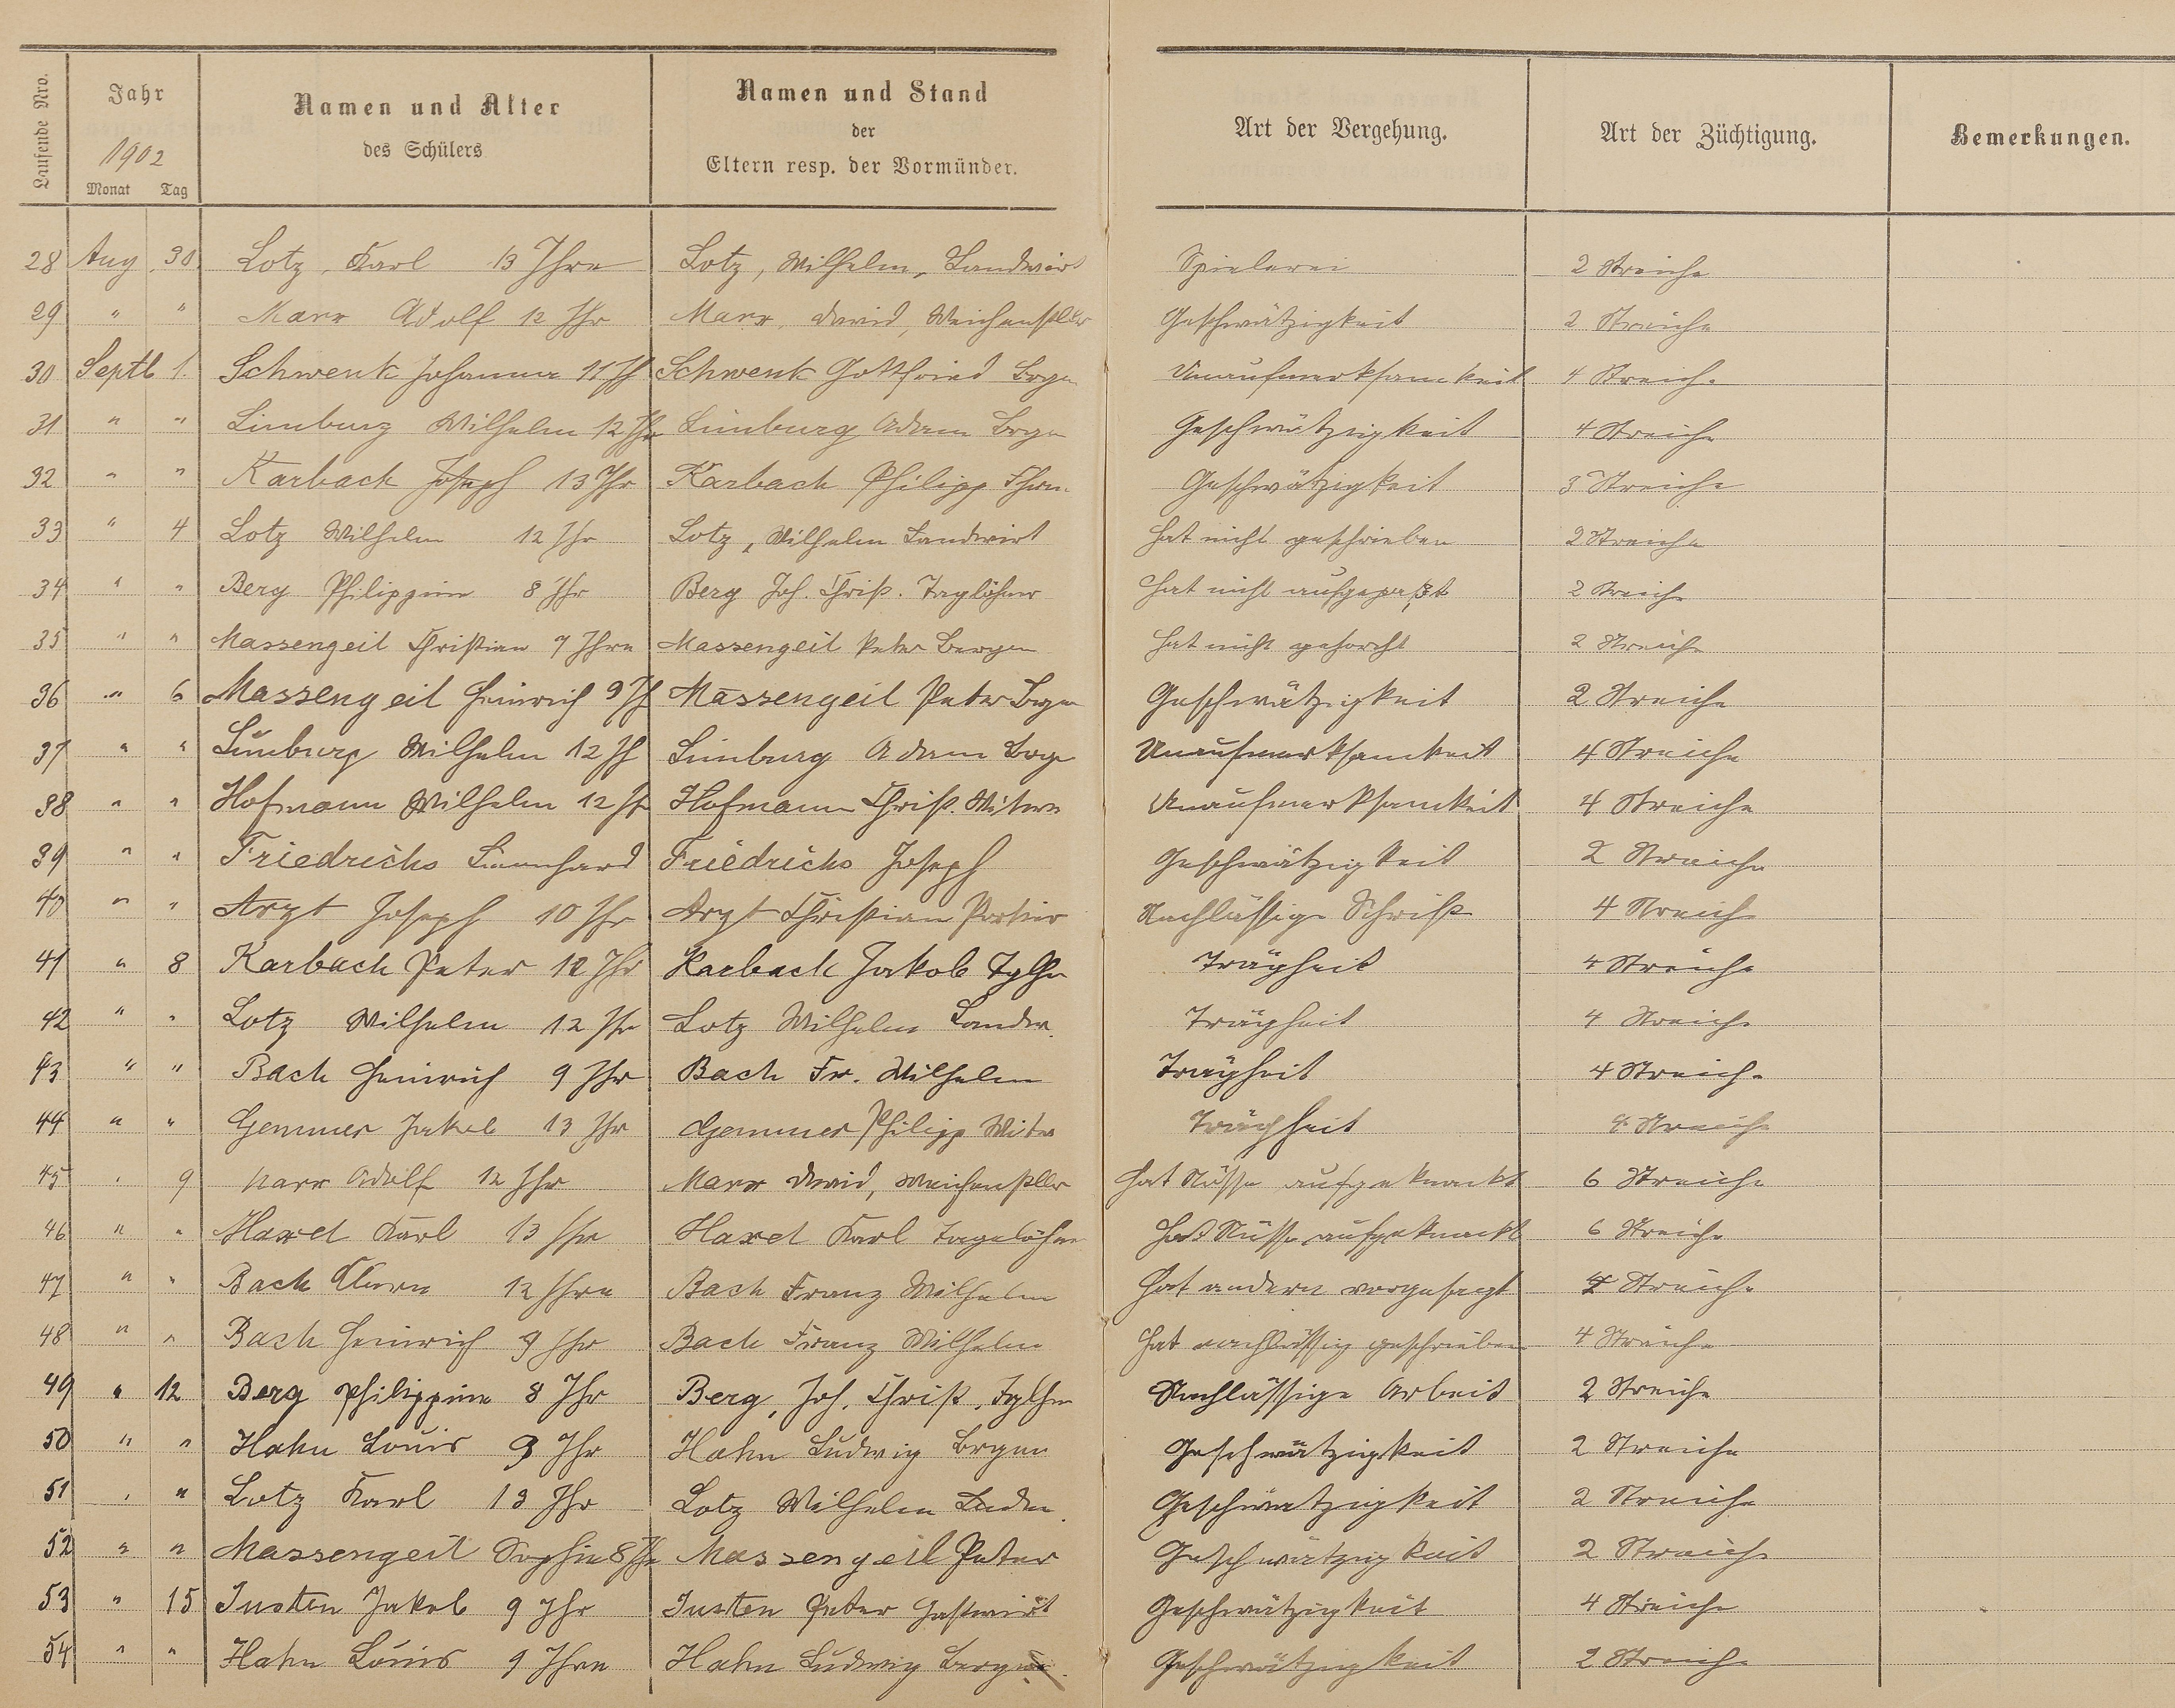 Laufende Nro.
Jahr
1902
Monat Tag
Namen und Alter
des Schülers
Namen und Stand
der
Eltern resp. der Vormünder.
Art der Vergehung.
Art der Züchtigung.
Bemerkungen.
28 Aug 30. Lotz, Karl 13 Jhre Lotz, Wilhelm, Landwirt Spielerei 2 Streiche
29 " " Marx Adolf 12 Jhr Marx, David, Weichenstller Geschwätzigkeit 2 Streiche
30 Septb 1. Schwenk Johanna 11 Jh Schwenk Gottfried Bergm Unaufmerksamkeit 4 Streiche
31 " " Limburg Wilhelm 12 Jhr Limburg Adam Bergm Geschwätzigkeit 4 Streiche
32 " " Karbach Joseph 13 Jhr Karbach Philipp Geschwätzigkeit 3 Streiche
33 " 4 Lotz Wilhelm 12 Jhr Lotz, Wilhelm Landwirt hat nicht geschrieben 2 Streiche
34 " " Berg Philippine 8 Jhr Berg Joh. Christ. Taglöhner hat nicht aufgepaßt 2 Streiche
35 " " Massengeil Christian 7 Jhre Massengeil Peter Bergm hat nicht gehorcht 2 Streiche
36 " 6 Massengeil Heinrich 9 Jh Massengeil Peter Bergm Geschwätzigkeit 2 Streiche
37 " " Limburg Wilhelm 12 Jh Limburg Adam Bergm Unaufmerksamkeit 4 Streiche
38 " " Hofmann Wilhelm 12 Jh Hofmann Christ. Witwe Unaufmerksamkeit 4 Streiche
39 " " Friedrichs Leonhard Friedrichs Joseph Geschwätzigkeit 2 Streiche
40 " " Arzt Joseph 10 Jhr Arzt Christian Portier Nachlässige Schrift 4 Streiche
41 " 8 Karbach Peter 12 Jhr Karbach Jakob Tglhn Trägheit 4 Streiche
42 " " Lotz Wilhelm 12 Jhr Lotz Wilhelm Landw. Trägheit 4 Streiche
43 " " Bach Heinrich 9 Jhr Bach Fr. Wilhelm Trägheit 4 Streiche
44 " " Gemmer Jakob 13 Jhr Gemmer Philipp Witwe Trägheit 4 Streiche
45 " 9 Marx Adolf 12 Jhr Marx David, Weichenstller hat Nüsse aufgeknackt 6 Streiche
46 " " Haxel Karl 13 Jhr Haxel Karl Tagelöhner hat Nüsse aufgeknackt 6 Streiche
47 " " Bach Clara 12 Jhre Bach Franz Wilhelm hat andern vorgesagt 4 Streiche
48 " " Bach Heinrich 9 Jhr Bach Franz Wilhelm hat nachlässig geschrieben 4 Streiche
49 " 12 Berg Philippine 8 Jhr Berg, Joh. Christ. Tglhn Nachlässige Arbeit 2 Streiche
50 " " Hahn Louis 9 Jhr Hahn Ludwig Bergm Geschwätzigkeit 2 Streiche
51 " " Lotz Karl 13 Jhr Lotz Wilhelm Landw. Geschwätzigkeit 2 Streiche
52 " " Massengeil Sophie 8 Jhr Massengeil Peter Geschwätzigkeit 2 Streiche
53 " 15 Justen Jakob 9 Jhr Justen Peter Gastwirt Geschwätzigkeit 4 Streiche
54 " " Hahn Louis 9 Jhre Hahn Ludwig Bergm. Geschwätzigkeit 2 Streiche